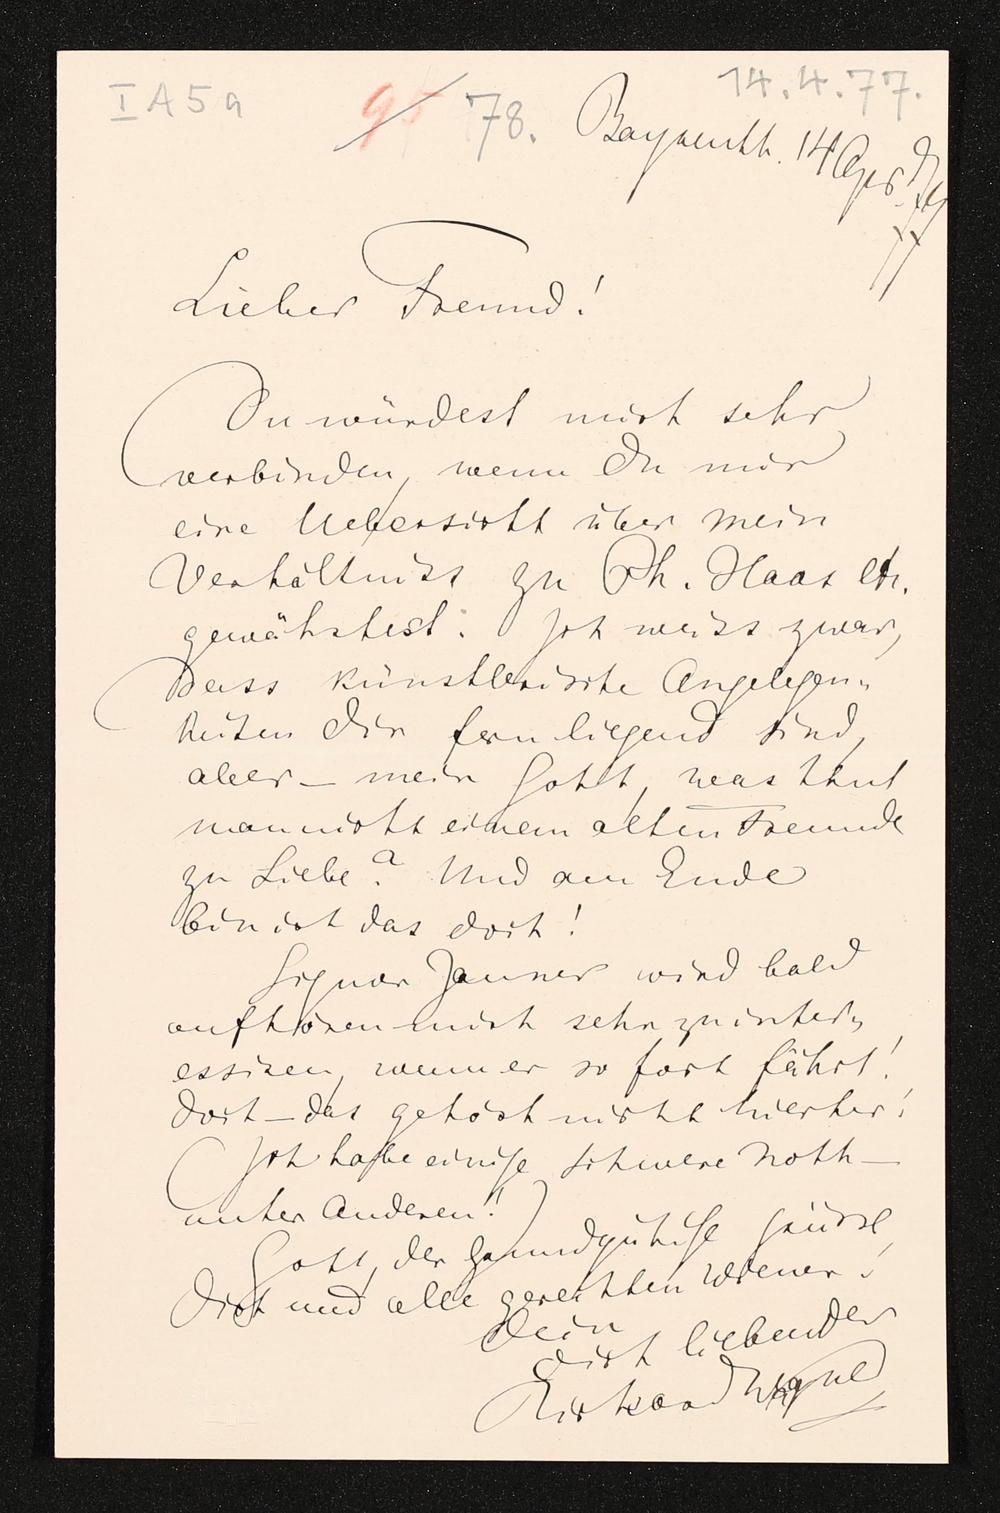 I A 5 a
95 78.
14.4.77.
Bayreuth. 14 Apr.
77
Lieber Freund!
Du würdest mich sehr
verbinden, wenn Du mir
eine Uebersicht über mein
Verhältniss zu Ph. Haas etc.
gewährtest. Ich weiss zwar,
dass künstlerische Angelegen-
heiten Dir fern liegend sind,
aber – mein Gott, was thut
man nicht einem alten Freunde
zu Liebe? Und am Ende
bin ich das doch!
Signor Jauner wird bald
aufhören mich sehr zu inter-
essiren, wenn er so fort fährt!
Doch – das gehört nicht hierher!
(Ich habe einige schwere Noth –
unter Anderen!)
Gott, der Grundgütige grüsse
Dich und alle gerechten Wiener!
Dein
dich liebender
Richard Wagner